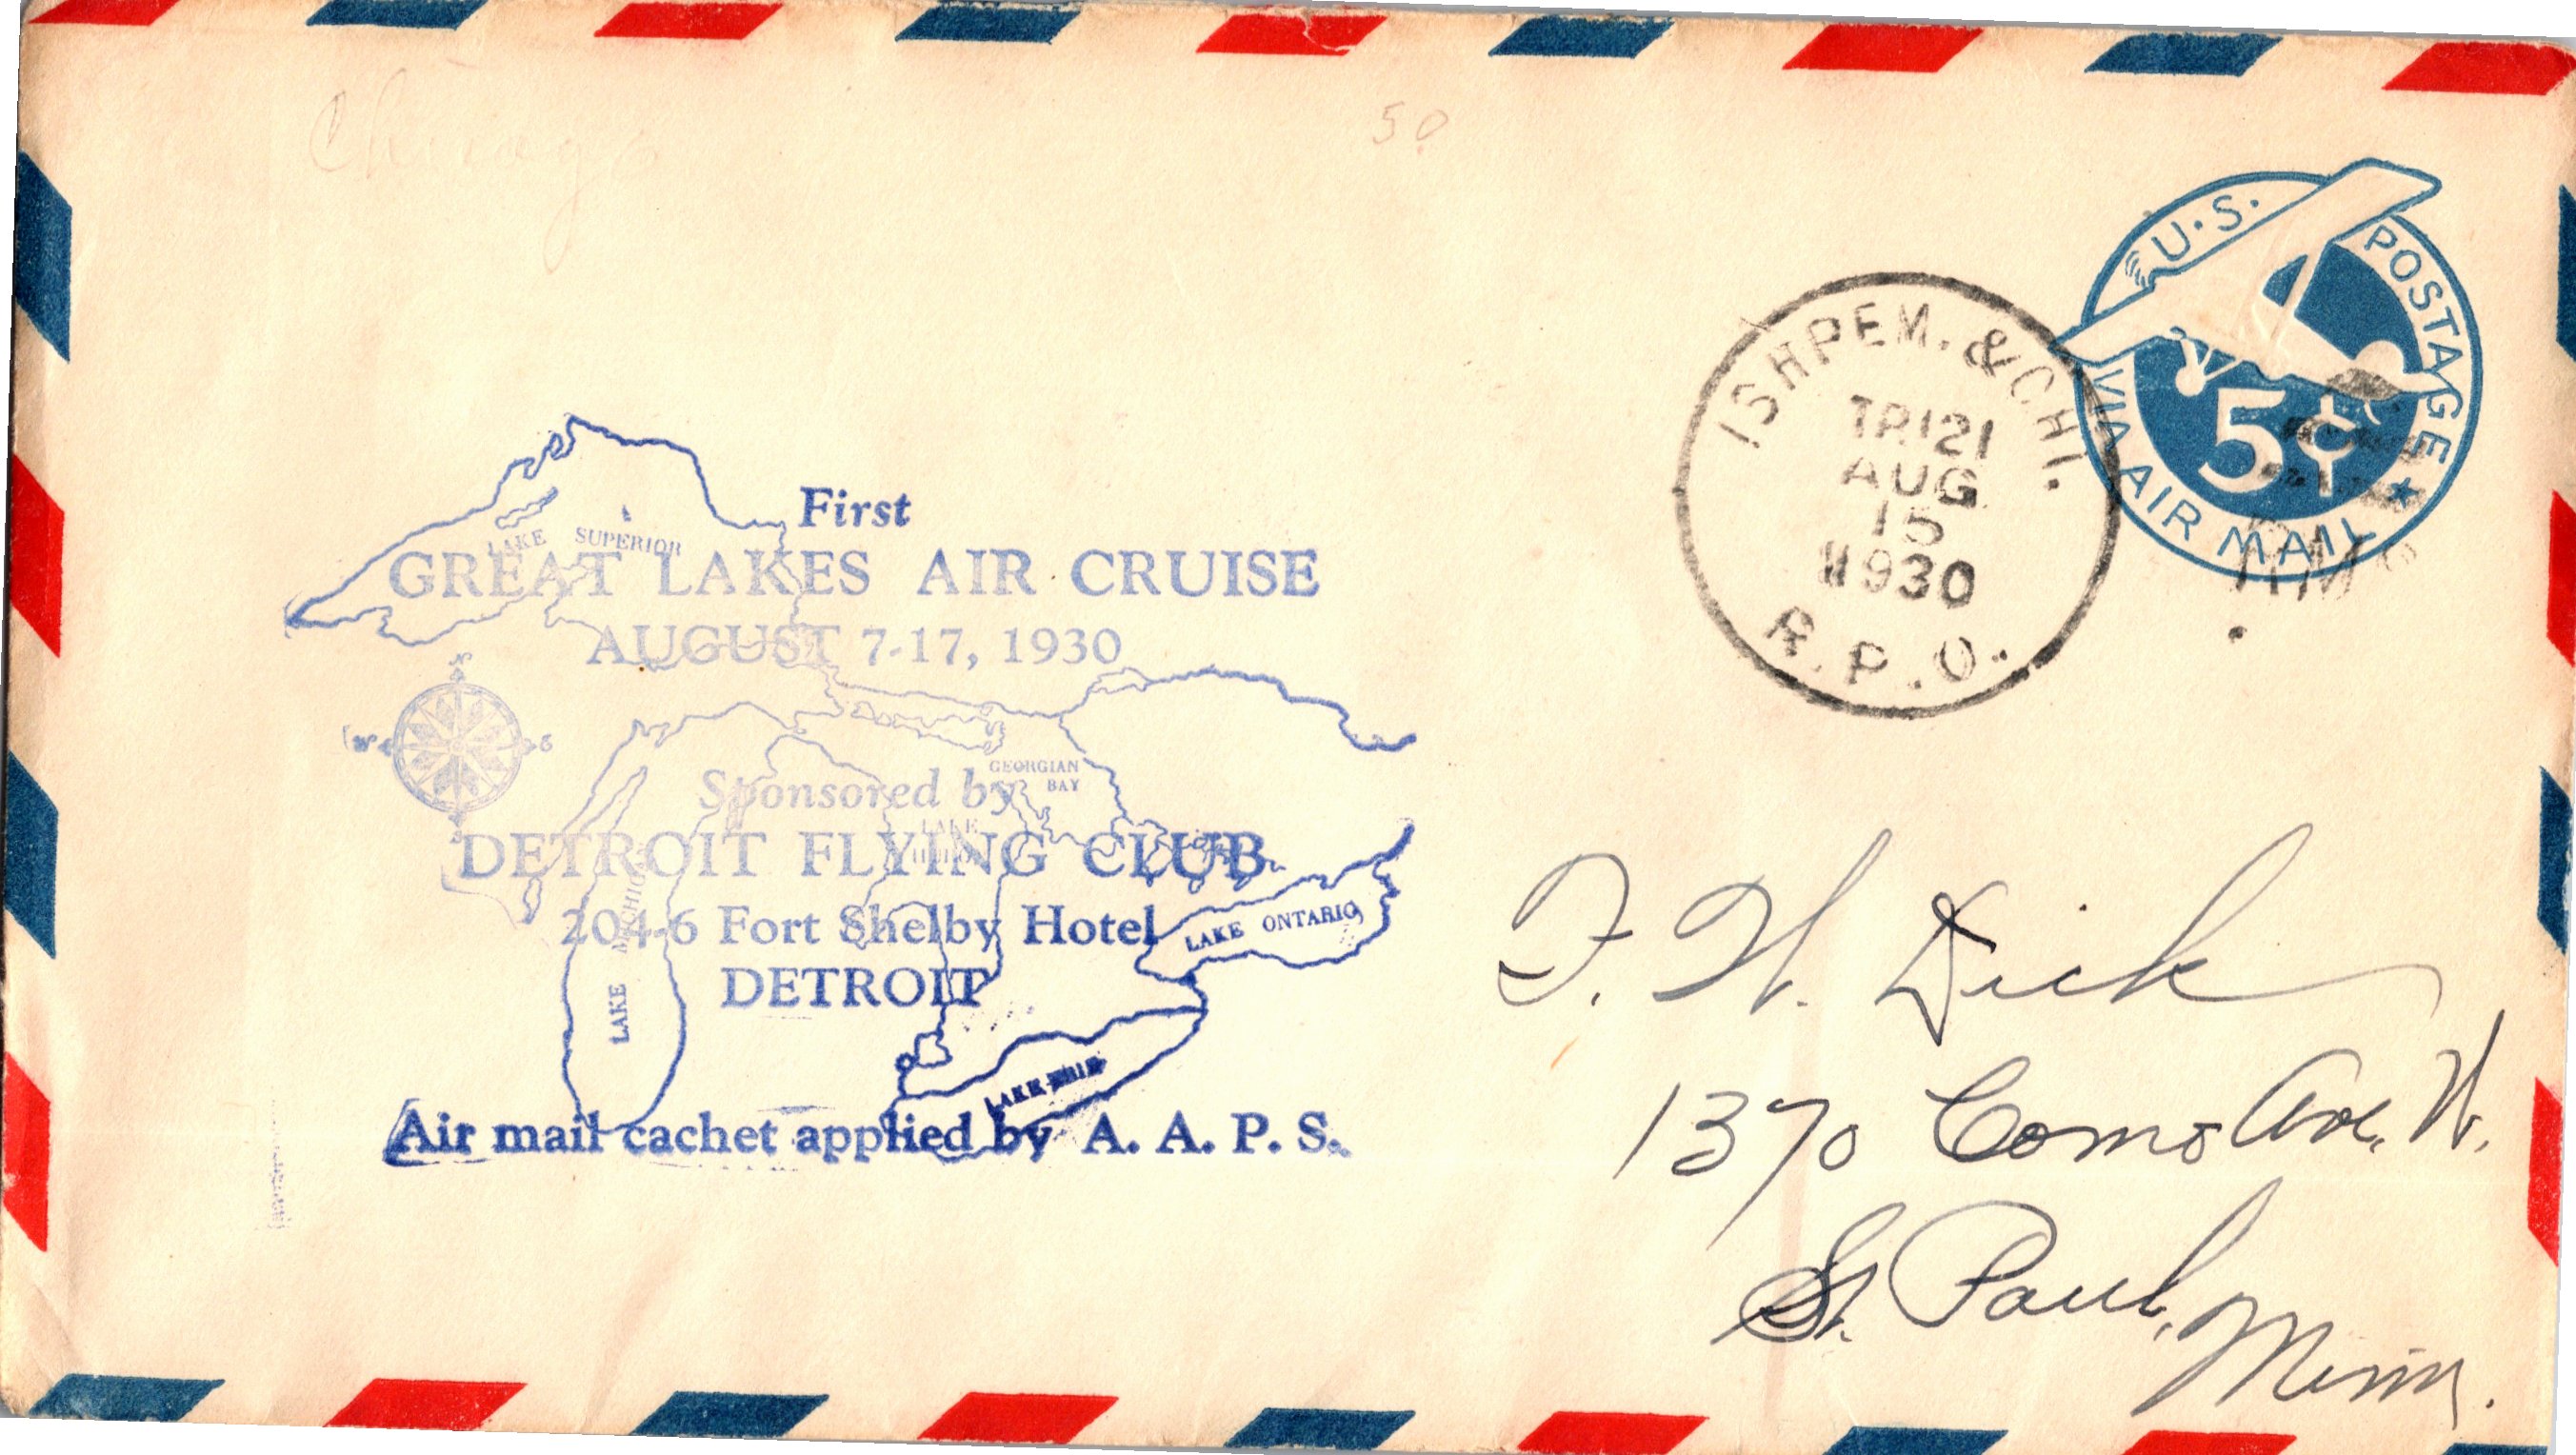 Chicago
50
U.S. POSTAGE
VIA AIR MAIL
5¢
ISHPEM. & CHI.
TR 121
AUG
15
1930
R.P.O.
First
LAKE SUPERIOR
GREAT LAKES AIR CRUISE
AUGUST 7-17, 1930
N
W
GEORGIAN
BAY
Sponsored by
LAKE
DETROIT FLYING CLUB
204-6 Fort Shelby Hotel
LAKE ONTARIO
DETROIT
LAKE MICHIGAN
LAKE ERIE
Air mail cachet applied by A. A. P. S.
Dick
1370 Como Ave. W.
St. Paul,
Minn.